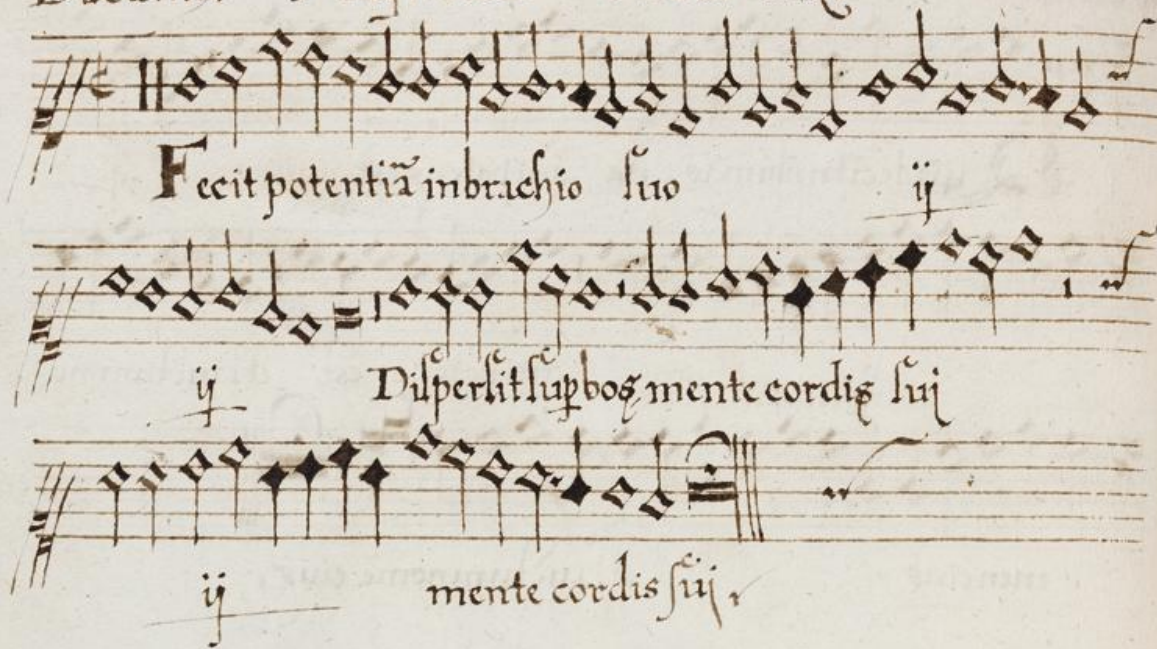 Fecit potentiã in brachio suo ij
ij Dispersit sup̱bos mente cordis sui
ij mente cordis sui,